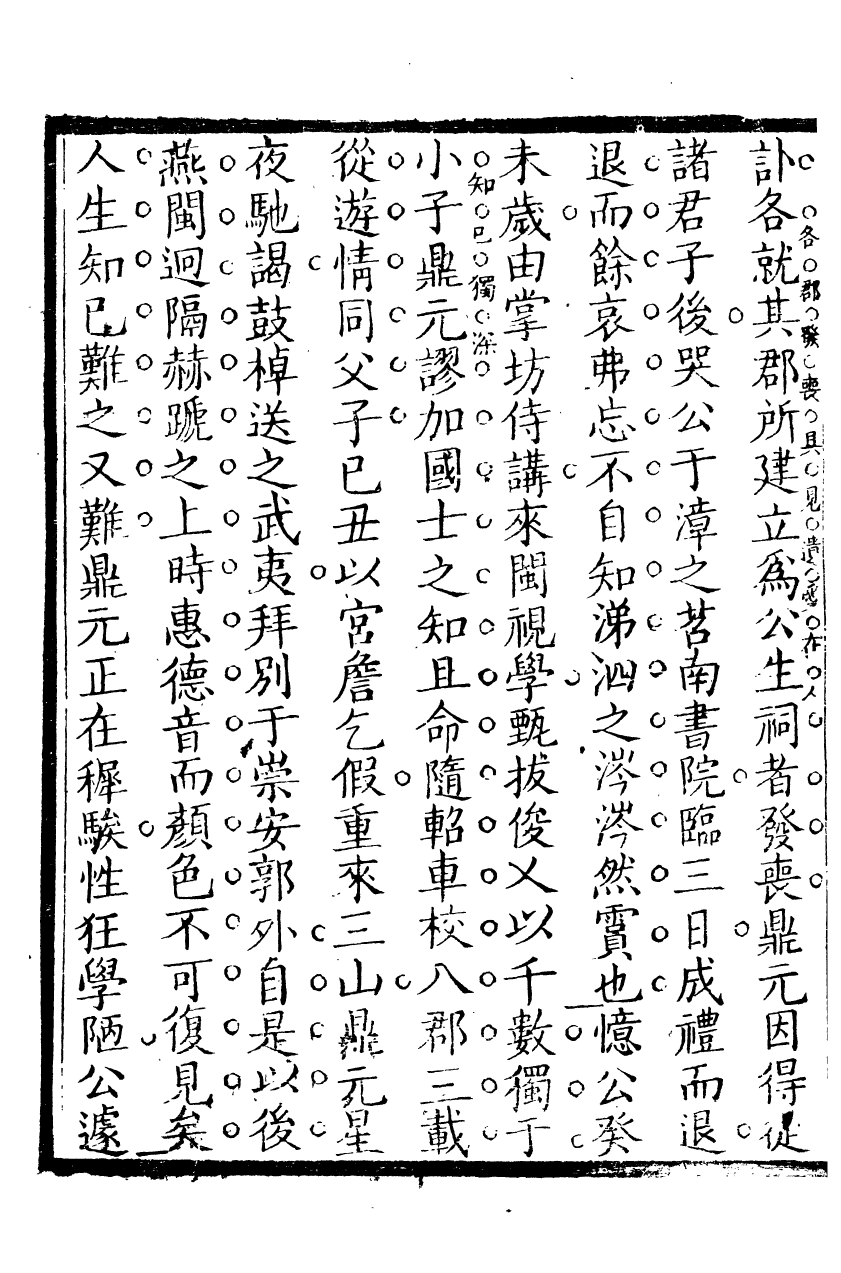 各郡發喪具見遺愛在人
訃各就其郡所建立為公生祠者發喪鼎元因得從
諸君子後哭公于漳之茗南書院臨三日成禮而退
退而餘哀弗忘不自知涕泗之涔涔然霣也憶公癸
未歲由掌坊侍講來閩視學甄拔俊乂以千數獨于
知己獨深
小子鼎元謬加國士之知且命隨軺車校八郡三載
從遊情同父子已丑以宮詹乞假重來三山鼎元星
夜馳謁鼓棹送之武夷拜別于崇安郭外自是以後
燕閩迥隔赫蹏之上時惠德音而顏色不可復見矣
人生知已難之又難鼎元正在穉騃性狂學陋公遽